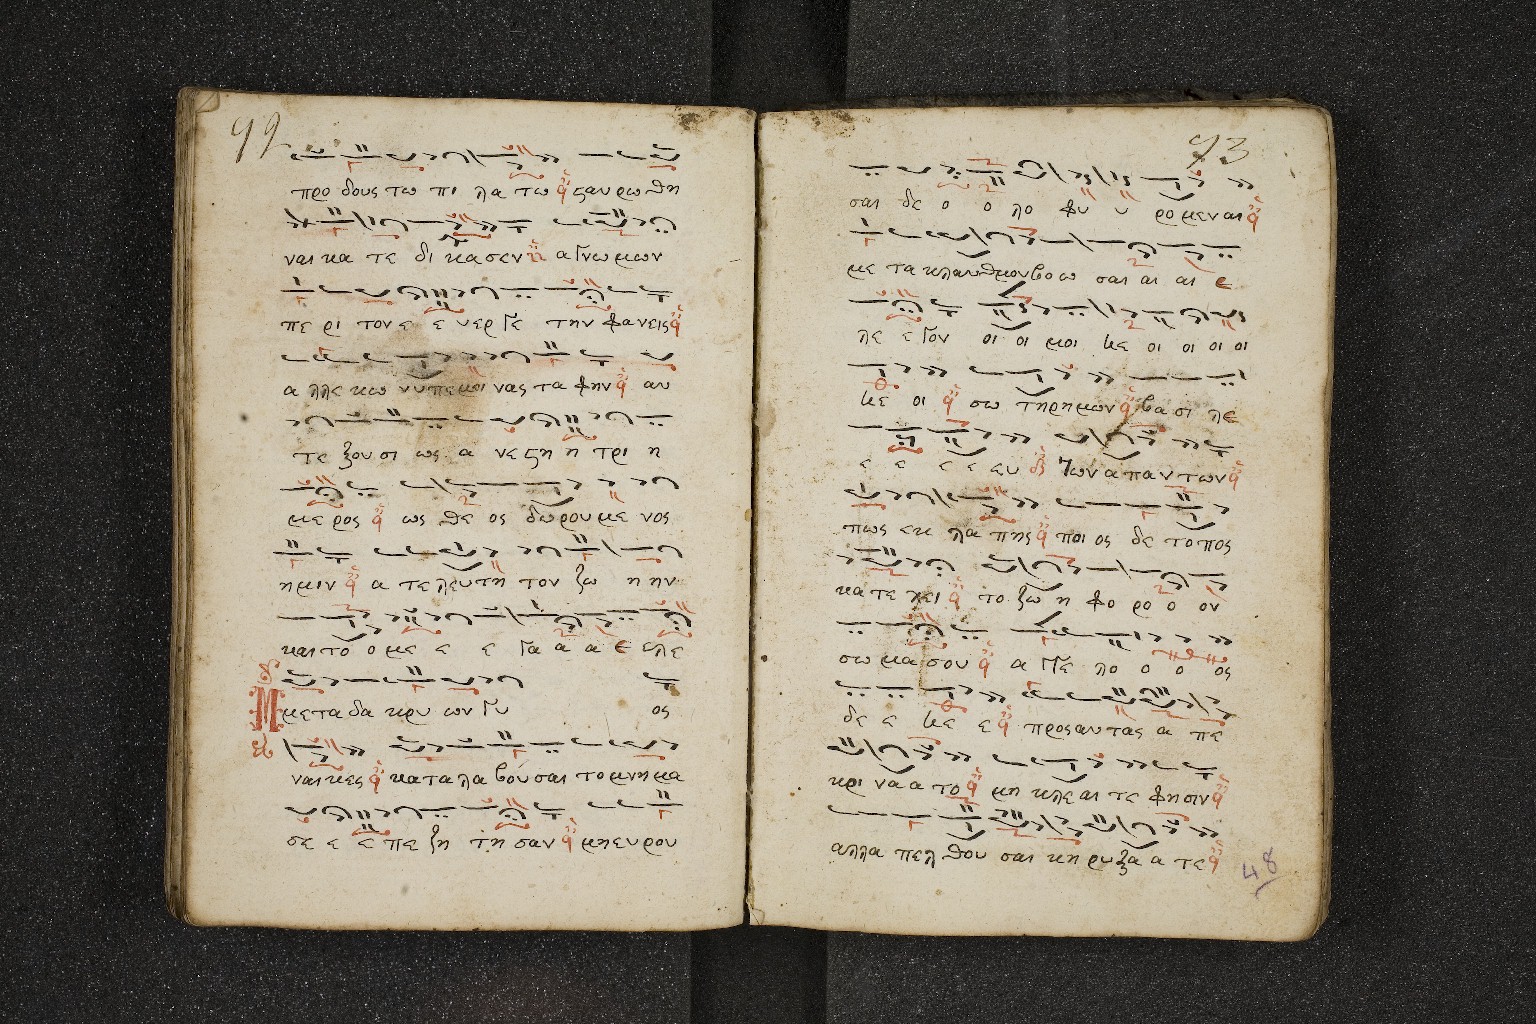 99
προ δους τω πι λα τω σταυ ρω θη
ναι κα τε δι κα σεν α γνω μων
πε ρι τον ε ε υερ γε την φα νεις
α λλε κω νυ πε μει νας τα φην αυ
τε ξου σι ως α νε στη η τρι η
με ρος ως θε ος δω ρου με νος
η μιν α τε λευ τη τον ζω η ην
και το ο με ε ε γα α α ε ε λε
δ
Μ μετα δα κρυ ων γυ ος
ναι κες κα τα λα βου σαι το μνη μα
σε ε ε πε ζη τη σαν μη ευ ρου
93
σαι δε ο ο λο φυ υ ρο μεν αι
με τα κλαυθμου βο ω σαι αι αι ε
λε ε γον οι οι μοι κε οι οι οι οι
κε οι σω τηρ ημων βα σι λε
ε ε ε ε ευ των α παν των
πως εκ λα πης ποι ος δε το πος
κα τε χει το ζω η φο ρο ο ον
σω μα σου α γγε λο ο ο ος
δε ε κε ε προς αυ τας α πε
κρι να α το μη κλε αι τε φη σιν
αλλα πελ θου σαι κη ρυ ξα α τε
48